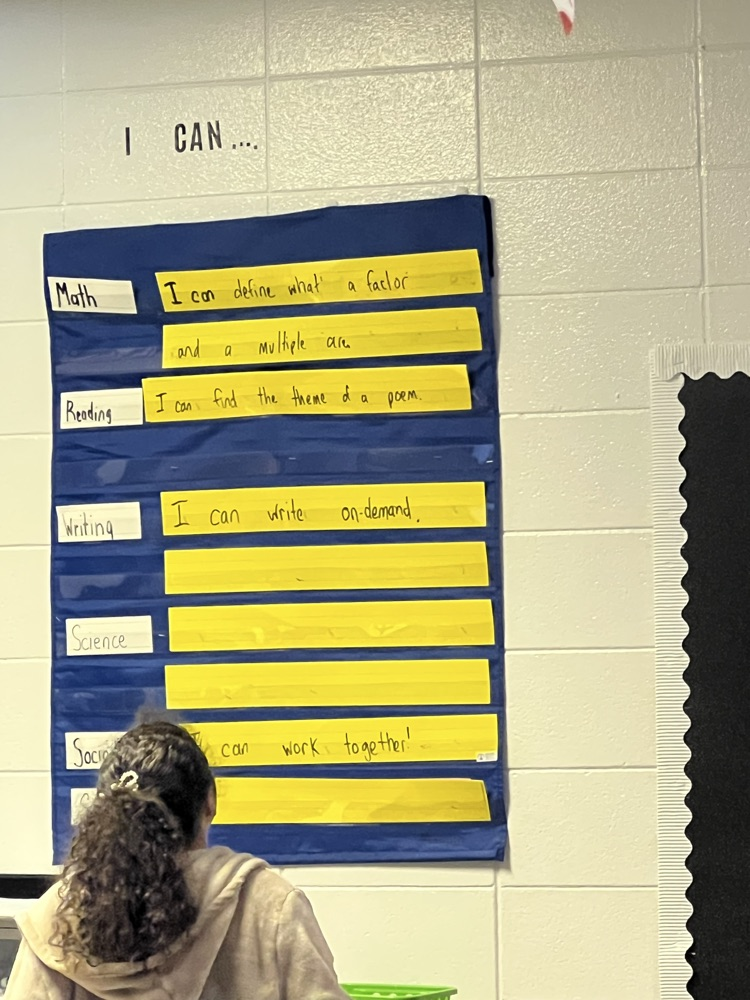 I CAN....
Math I can define what a factor
and a multiple are
Reading I can find the theme of a poem.
Writing I can write on-demand.
Science
I can work together!